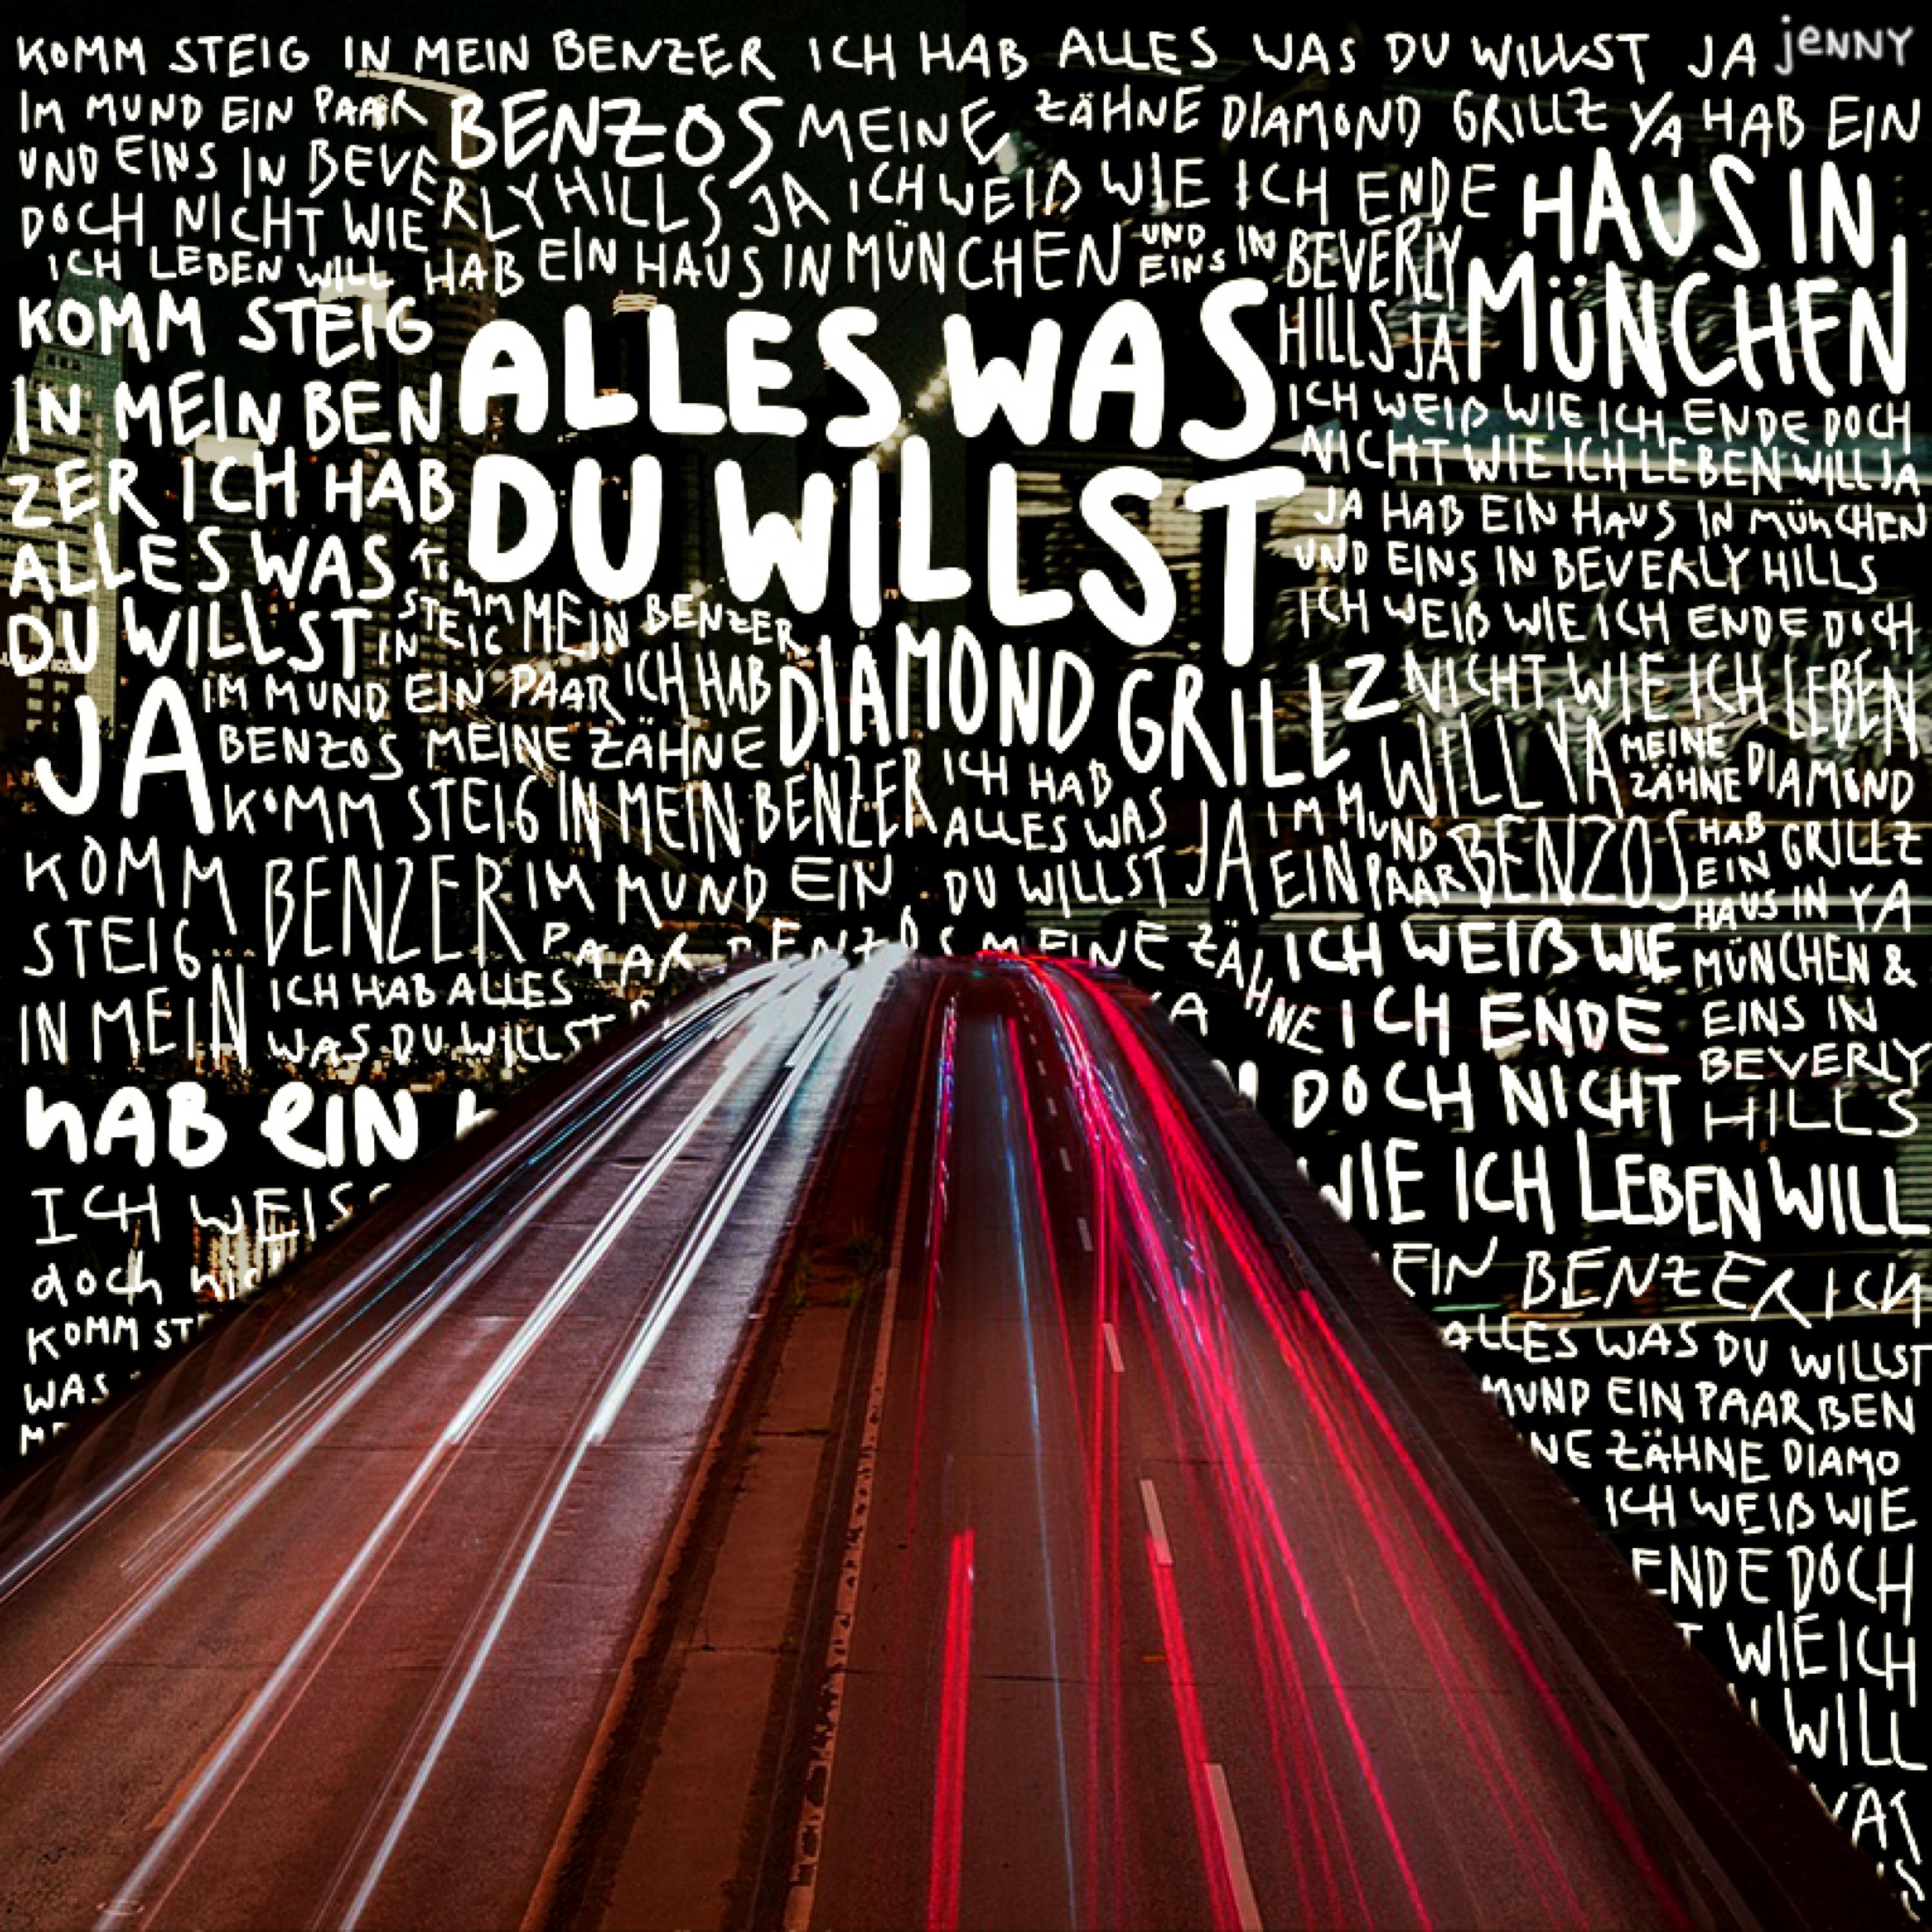 KOMM STEIG IN MEIN BENZER ICH HAB ALLES WAS DU WILLST JA jENNY
IM MUND EIN PAAR BENZOS MEINE ZÄHNE DIAMOND GRILLZ YA HAB EIN
HAUS IN MÜNCHEN
UND EINS IN BEVERLY HILLS JA ICH WEIß WIE ICH ENDE
DOCH NICHT WIE
ICH LEBEN WILL HAB EIN HAUS IN MÜNCHEN UND EINS IN BEVERLY
HILLS JA
KOMM STEIG
IN MEIN BEN
ZER ICH HAB
ALLES WAS
DU WILLST
JA
ALLES WAS
DU WILLST
ICH WEIß WIE ICH ENDE DOCH
NICHT WIE ICH LEBEN WILL JA
JA HAB EIN HAUS IN MÜNCHEN
UND EINS IN BEVERLY HILLS
ICH WEIß WIE ICH ENDE DOCH
NICHT WIE ICH LEBEN
WILL YA
KOMM
STEIG
IN MEIN BENZER
IM MUND EIN PAAR ICH HAB
BENZOS MEINE ZÄHNE
DIAMOND GRILLZ
MEINE
ZÄHNE DIAMOND
GRILLZ
YA
KOMM STEIG IN MEIN BENZER ICH HAB
ALLES WAS
DU WILLST JA
IM MUND
EIN PAAR BENZOS
HAB
EIN
HAUS IN
MÜNCHEN &
EINS IN
BEVERLY
HILLS
KOMM
STEIG
IN MEIN
BENZER IM MUND EIN
PAAR BENZOS MEINE ZÄHNE
ICH HAB ALLES
WAS DU WILLST
YA
ICH WEIß WIE
ICH ENDE
DOCH NICHT
WIE ICH LEBEN WILL
HAB EIN
ICH WEISS
doch
KOMM ST
WAS
EIN BENZER ICH
ALLES WAS DU WILLST
MUND EIN PAAR BEN
NE ZÄHNE DIAMO
ICH WEIß WIE
ENDE DOCH
WIE ICH
WILL